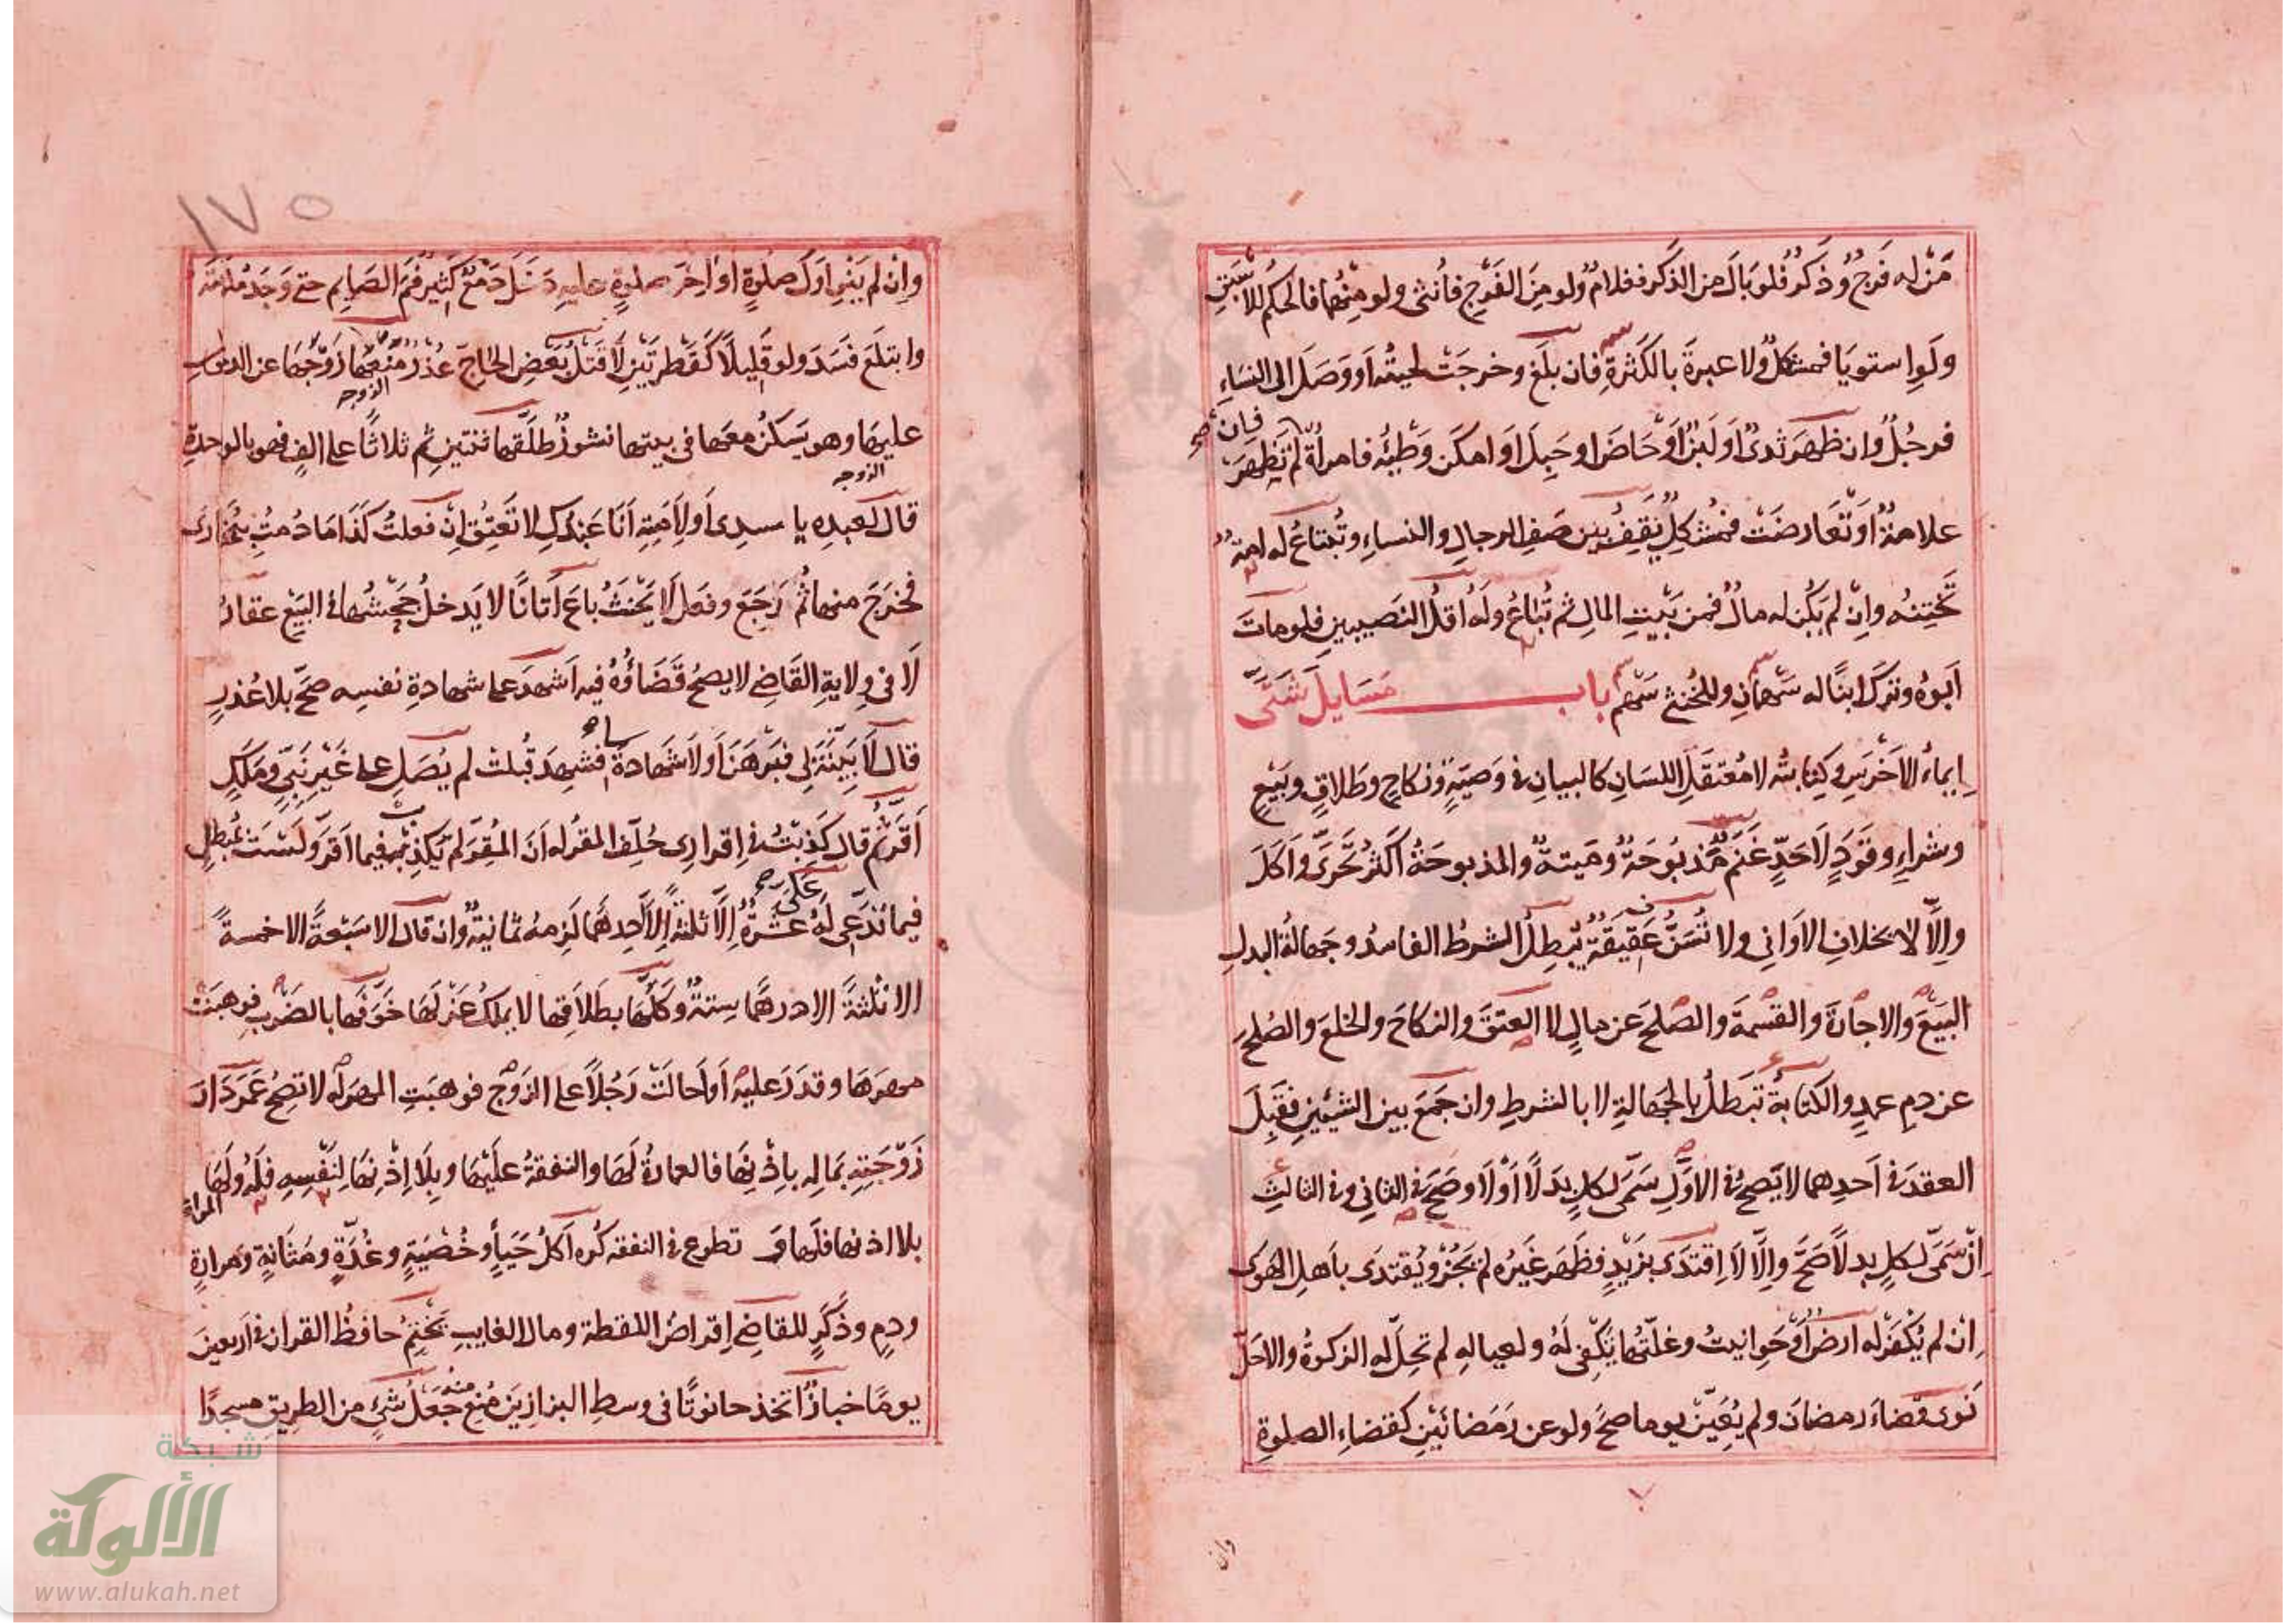 مَنْ له فَرجٌ وذَكَرٌ فلو بَالَ من الذَكَر فغلامٌ ولو مِنَ الفَرْجِ فأُنثى ولو مِنْهُما فالحكمُ للأسْبَقِ
ولَوِ استويَا فمشكلٌ ولا عبرةَ بالكَثْرةِ فان بلَغَ وخرجَتْ لحيتُه اَو وَصَلَ الى النِسَاءِ
فرجُلٌ وان ظهَرَ ثدىٌ اَو لَبَنٌ اَوْ حَاضَ او حَبِلَ اَو امكَنَ وَطْئُه فامرأةٌ فان لم تَظهَرَ صح
علامةٌ اَوْ تَعَارضَتْ فمُشكِلٌ يَقِفُ بين صَفِ الرجالِ والنساءِ وتُبتاعُ له امةٌ
تَختِنهُ وإنْ لم يَكُن له مالٌ فمن بَيْتِ المالِ ثم تُباعُ ولَهُ اقلُ النَصيبينِ فلو ماتَ
اَبوهُ وتركَ ابنًا له سَهمانِ وللخُنثى سَهم باب مَسَايلَ شَتَّى
إيماءُ الاَخْرَسِ وكِتابتُه لا مُعتقَلِ اللسَانِ كالبيانِ فى وَصَيّةٍ ونكاحٍ وطَلاقٍ وبَيْعٍ
وشراءٍ وقَودٍ لاَ حَدٍّ غَنَمٌ مَّذبُوحَةٌ ومَيتةٌ والمذبوحَةُ اكثرُ تَحَرَّى واَكَلَ
واِلَّا لا بخلافِ الاَوَانى ولا تُسَنُّ عَقِيقَةٌ يُبطِلُ الشرطُ الفاسدُ وجَهالةُ البدلِ
البَيعَ والاجارَةَ والقسْمةَ والصُلحَ عن مالٍ لا العتقَ والنكاحَ والخلعَ والصُلحَ
عن دمِ عمدٍ والكتابةُ تَبطلُ بالجَهالةِ لا بالشرطِ وان جَمَعَ بين الشيئينِ فقَبِلَ
العقدَ فى اَحدِهما لا يَصحُ فى الاوَّلِ سَمَّى لكلٍ بدَلًا اَوْ لَا وصَحَّ فى الثانى وفى الثالثِ
إنْ سَمَّى لكلٍ بدلًا صَحَّ واِلَّا لَا اِقتدَى بزَيْدٍ فظَهَر غَيرُه لم يَجُزْ ويُقتدَى باَهلِ الهَوى
إنْ لم يُكْفَرْ له ارضٌ اَوْ حَوانيتُ وغلَّتُها تَكْفى لَهُ ولعيالهِ لم تحِلّ له الزكوةُ والا حَلّ
نَوى قضاءَ رمضانَ ولم يُعَيّنْ يوما صحَّ ولو عن رَمَضانَيْنِ كقضاءِ الصلوةِ
وان
١٧٥
وإنْ لم يَنْوِ اَوَّلَ صلوةٍ او اٰخِرَ صلوةٍ عليهِ دَخَلَ دَمْعٌ كَثِيرٌ فَمَ الصَايِم حتى وَجَدَ مُلُوحَته
وابتلَعَ فسَدَ ولو قَلِيلًا كقَطرتَيْنِ لَا قَتلُ بَعضِ الحَاجِ عُذرٌ مَنْعُها زَوْجَها عن الدخول
الزوجه
عليها وهو يَسكُنُ معها فى بيتها نشوزٌ طلَّقها ثنتينِ ثم ثلاثًا على الفٍ فهو بالوحدةِ
الزوجه
قال لعبدِه يا سيدى اَو لِاَمَتِه اَنا عَبْدُكِ لا تَعْتِقُ اِنْ فعلتُ كذَا مَا دُمتُ بِبُخارَى
فخرَجَ منها ثُم رَجَعَ وفعَلَ لا يَحْنَثُ باعَ اَتانًا لا يَدخلُ جَحْشُها فى البَيْعِ عقارٌ
لَا فى وِلايةِ القَاضِى لا يصحُ قَضَاؤُهُ فيه اَشهدَ على شهادةِ نفسِه صَحَّ بلا عُذرٍ
قالَ لَا بَيّنةَ لى فبَرهَنَ اَو لَا شَهادةَ فشهِدَ قُبلتْ لم يُصَلِ على غَيْرِ نَبِىٍّ ومَلَكٍ
اَقَرَّ ثُم قال كَذِبْتُ فى إقرارِى حُلِّف المقرُ له اَنَ المُقِرَّ لم يَكذِبْ فيما اَقرَّ ولَسْتَ بمُبْطِلٍ
فيما تَدَّعى لَهُ عَلَىَّ صح عشرةٌ إلَّا ثلثةً إلَّا دِرهَمًا لَزِمهُ ثمانيةٌ وان قال الا سَبْعةً الا خمسةً
الا ثلثةً الا درهما ستةٌ وكَّلَها بطَلاقِها لا يملكُ عَزْلَها خَوَّفَها بالضَربِ فوهبَتْ
مهرَهَا وقدَرَ عليه اَو اَحالَتْ رَجُلًا على الزَوْجِ فوهَبَتِ المهرَ له لا تصِحُ عَمَر دَارَ
زَوْجَتِه بمَالِه باذْنِها فالعمارةُ لَها والنفقةُ علَيْها وبلَا اِذْنِها لنَفْسِهِ فلَهُ ولَها
المراة
بلا اذنها فلَها و تطوع فى النفقه كُره اَكلُ حَيَاءٍ وخُصْيَةٍ وغُدَّةٍ ومَثَانةٍ ومَرارةٍ
ودمٍ وذَكَرٍ للقاضى إقراضُ اللقطة ومال الغايب يَختِمُ حافظُ القرانِ فى اَربعين
يومًا خبازٌ اتخذ حانوتًا فى وسطِ البزازِينَ مُنِعَ منه جَعْلُ شئٍ من الطريق مسجدًا
شبكة
الألوكة
www.alukah.net